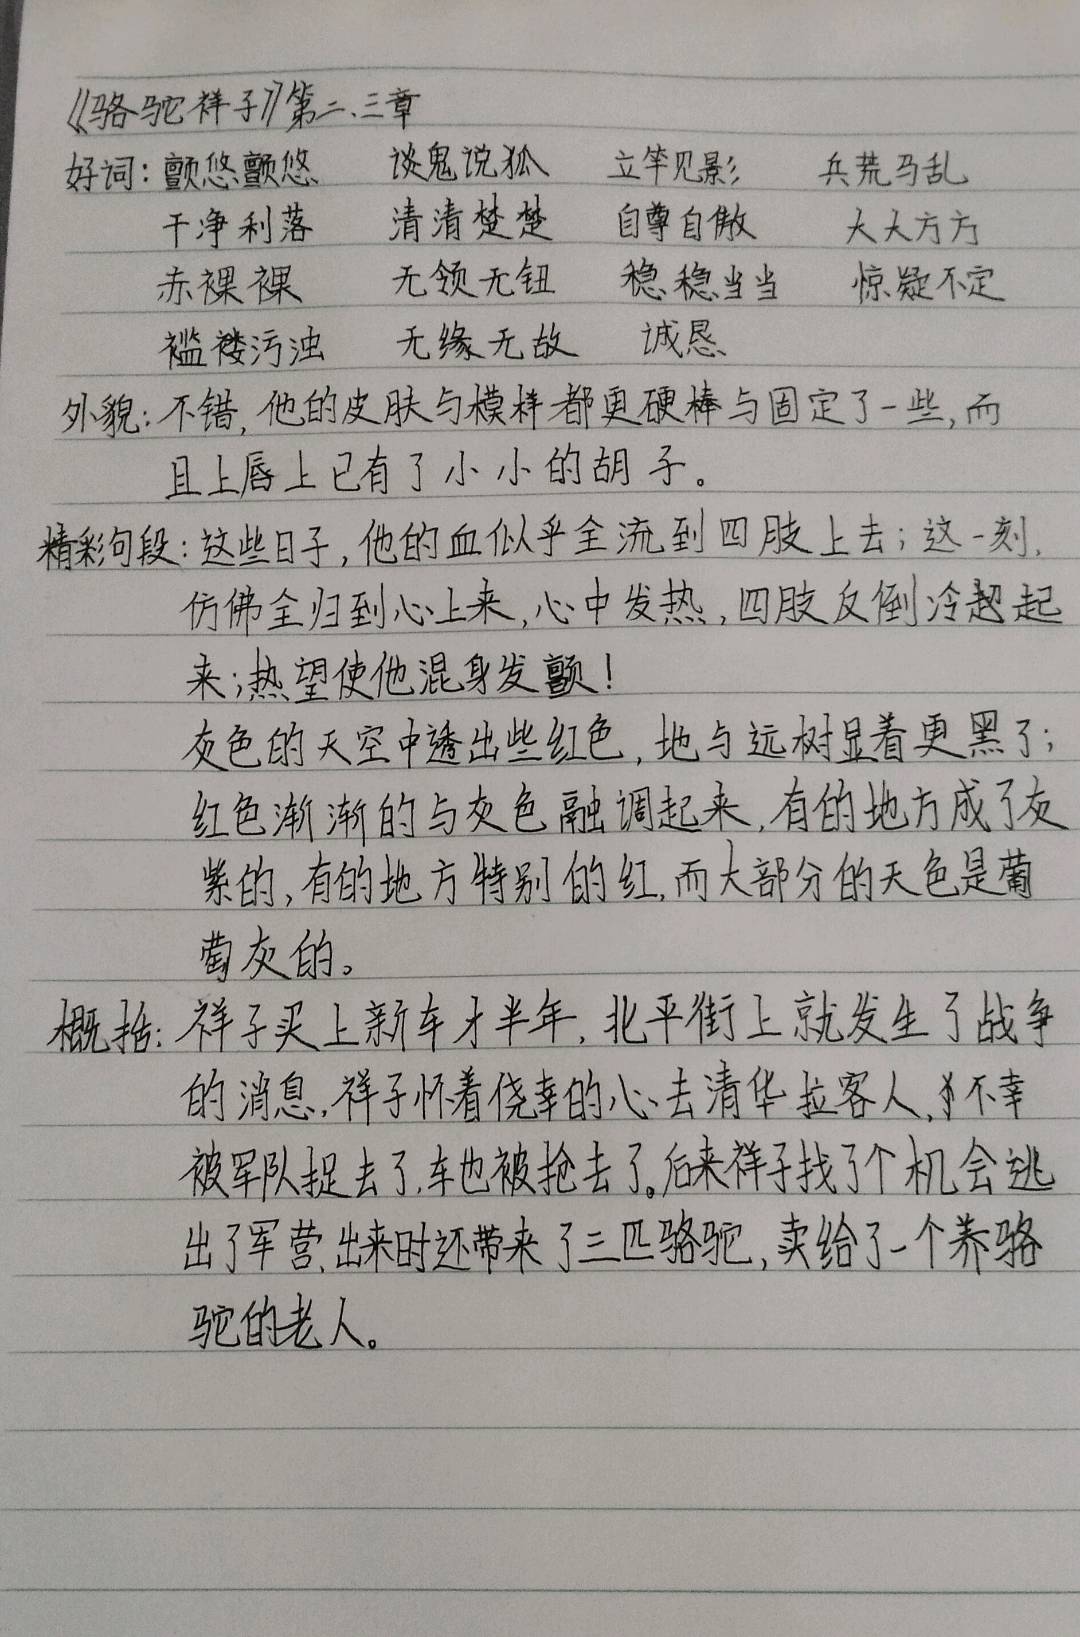 《骆驼祥子》第二、三章
好词：颤悠颤悠 谈鬼说狐 立竿见影 兵荒马乱
干净利落 清清楚楚 自尊自傲 大大方方
赤裸裸 无领无钮 稳稳当当 惊疑不定
褴褛污浊 无缘无故 诚恳
外貌：不错，他的皮肤与模样都更硬棒与固定了一些，而
且上唇上已有了小小的胡子。
精彩句段：这些日子，他的血似乎全流到四肢上去；这一刻，
仿佛全归到心上来，心中发热，四肢反倒冷起
来；热望使他混身发颤！
灰色的天空中透出些红色，地与远树显着更黑了；
红色渐渐的与灰色融调起来，有的地方成了灰
紫的，有的地方特别的红，而大部分的天色是葡
萄灰的。
概括：祥子买上新车才半年，北平街上就发生了战争
的消息，祥子怀着侥幸的心去清华拉客人，不幸
被军队捉去了，车也被抢去了。后来祥子找了个机会逃
出了军营，出来时还带来了三匹骆驼，卖给了一个养骆
驼的老人。